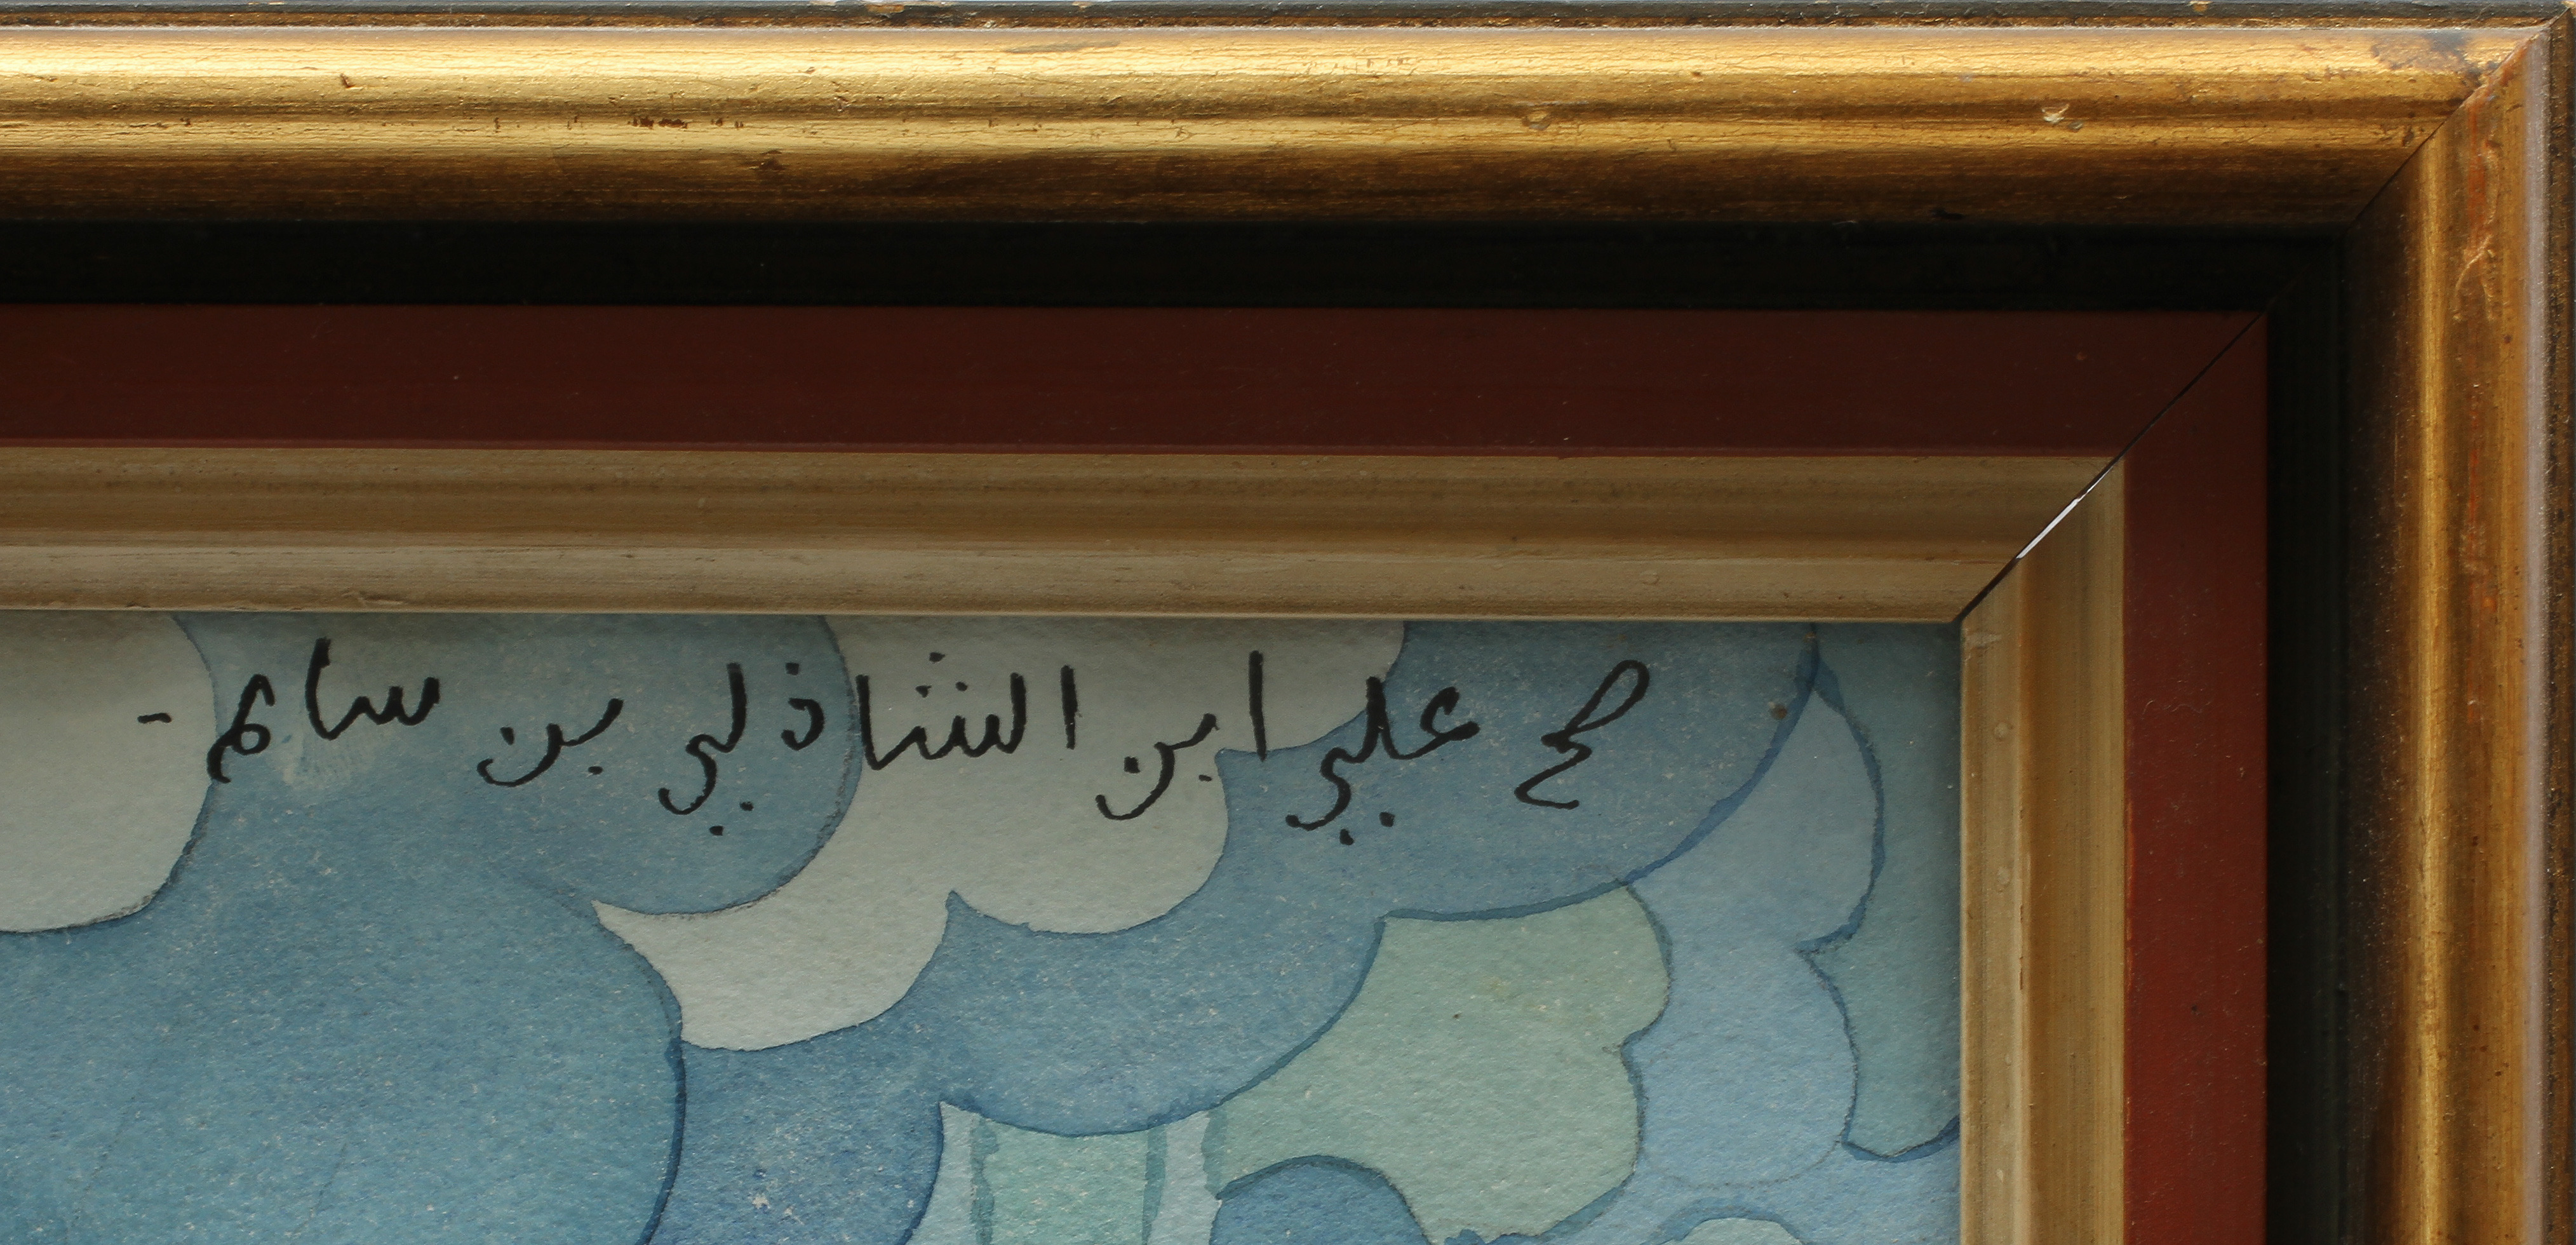 صح علي ابن الشاذلي بن سالم -